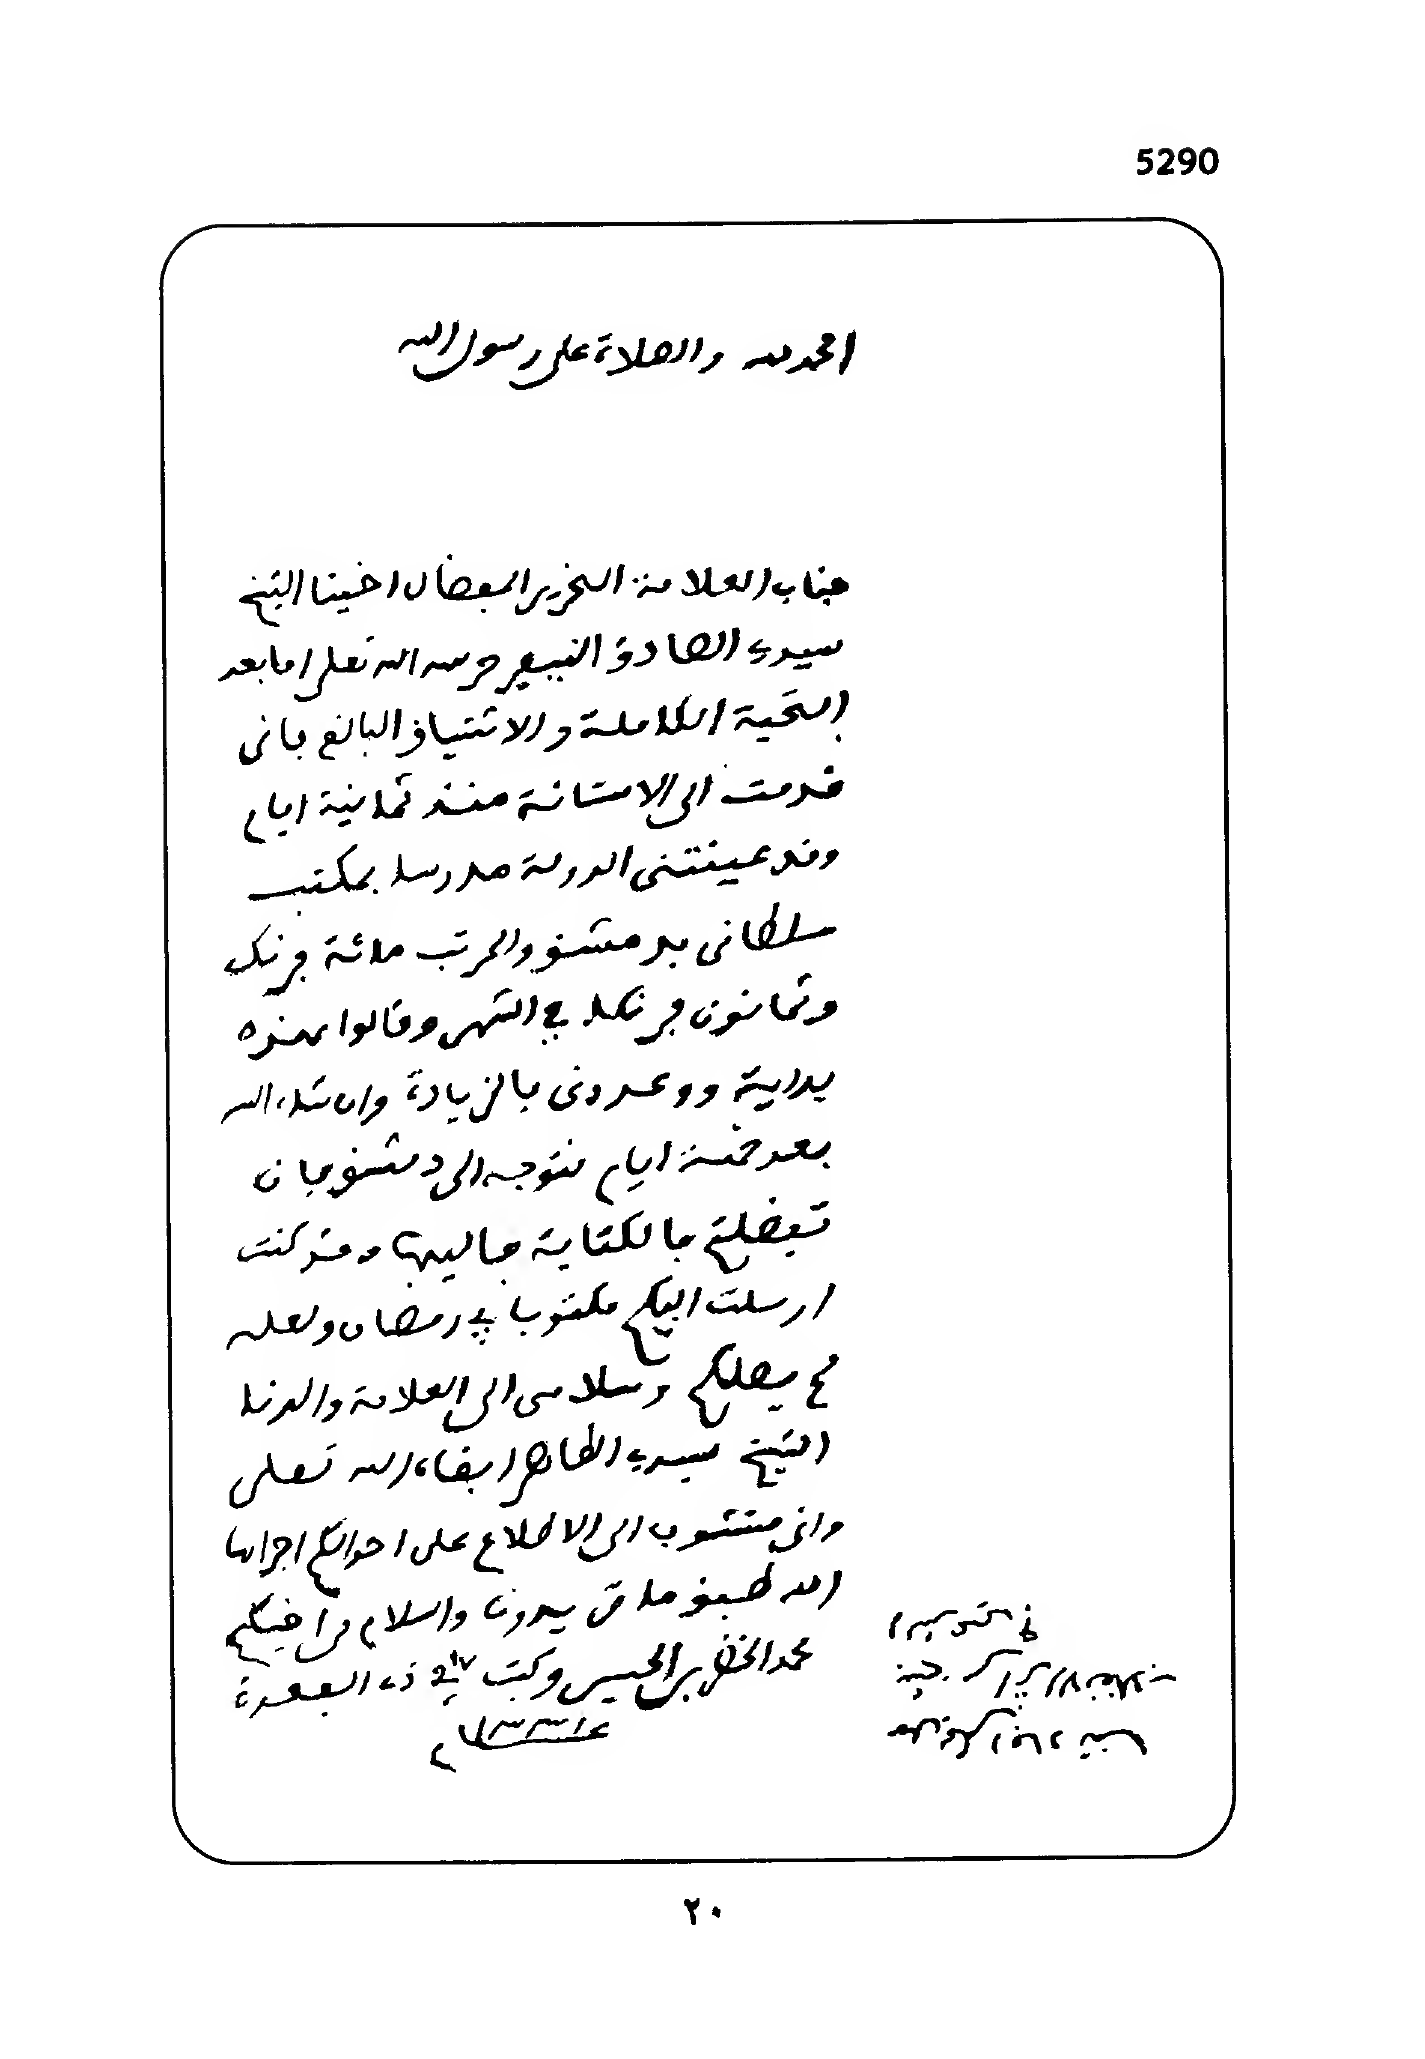 5290
الحمد لله والصلاة على رسول الله
جناب العلامة النحرير المفضال اخينا الشيخ
سيدي الصادق النيفر حرسه الله تعلى اما بعد
التحية الكاملة والاشتياق البالغ فاني
قدمت الى الاستانة منذ ثمانية ايام
وقد عينتني الدولة مدرسا بمكتب
سلطاني بدمشق والمرتب مائة فرنك
وثمانون فرنكا في الشهر وقالوا هذه
بداية ووعدوني بالزيادة وان شاء الله
بعد خمسة ايام نتوجه الى دمشق فان
تفضلتم بالكتابة فاليها وقد كنت
ارسلت اليكم مكتوبا في رمضان ولعله
لم يصلكم وسلامي الى العلامة والدنا
الشيخ سيدي الطاهر ابقاه الله تعلى
واني متشوف الى الاطلاع على احوالكم اجراها
الله طبق ما تريدون والسلام من اخيكم
محمد الخضر بن الحسين وكتب في ١٧ ذي القعدة
عام ١٣٣٠
٢٠